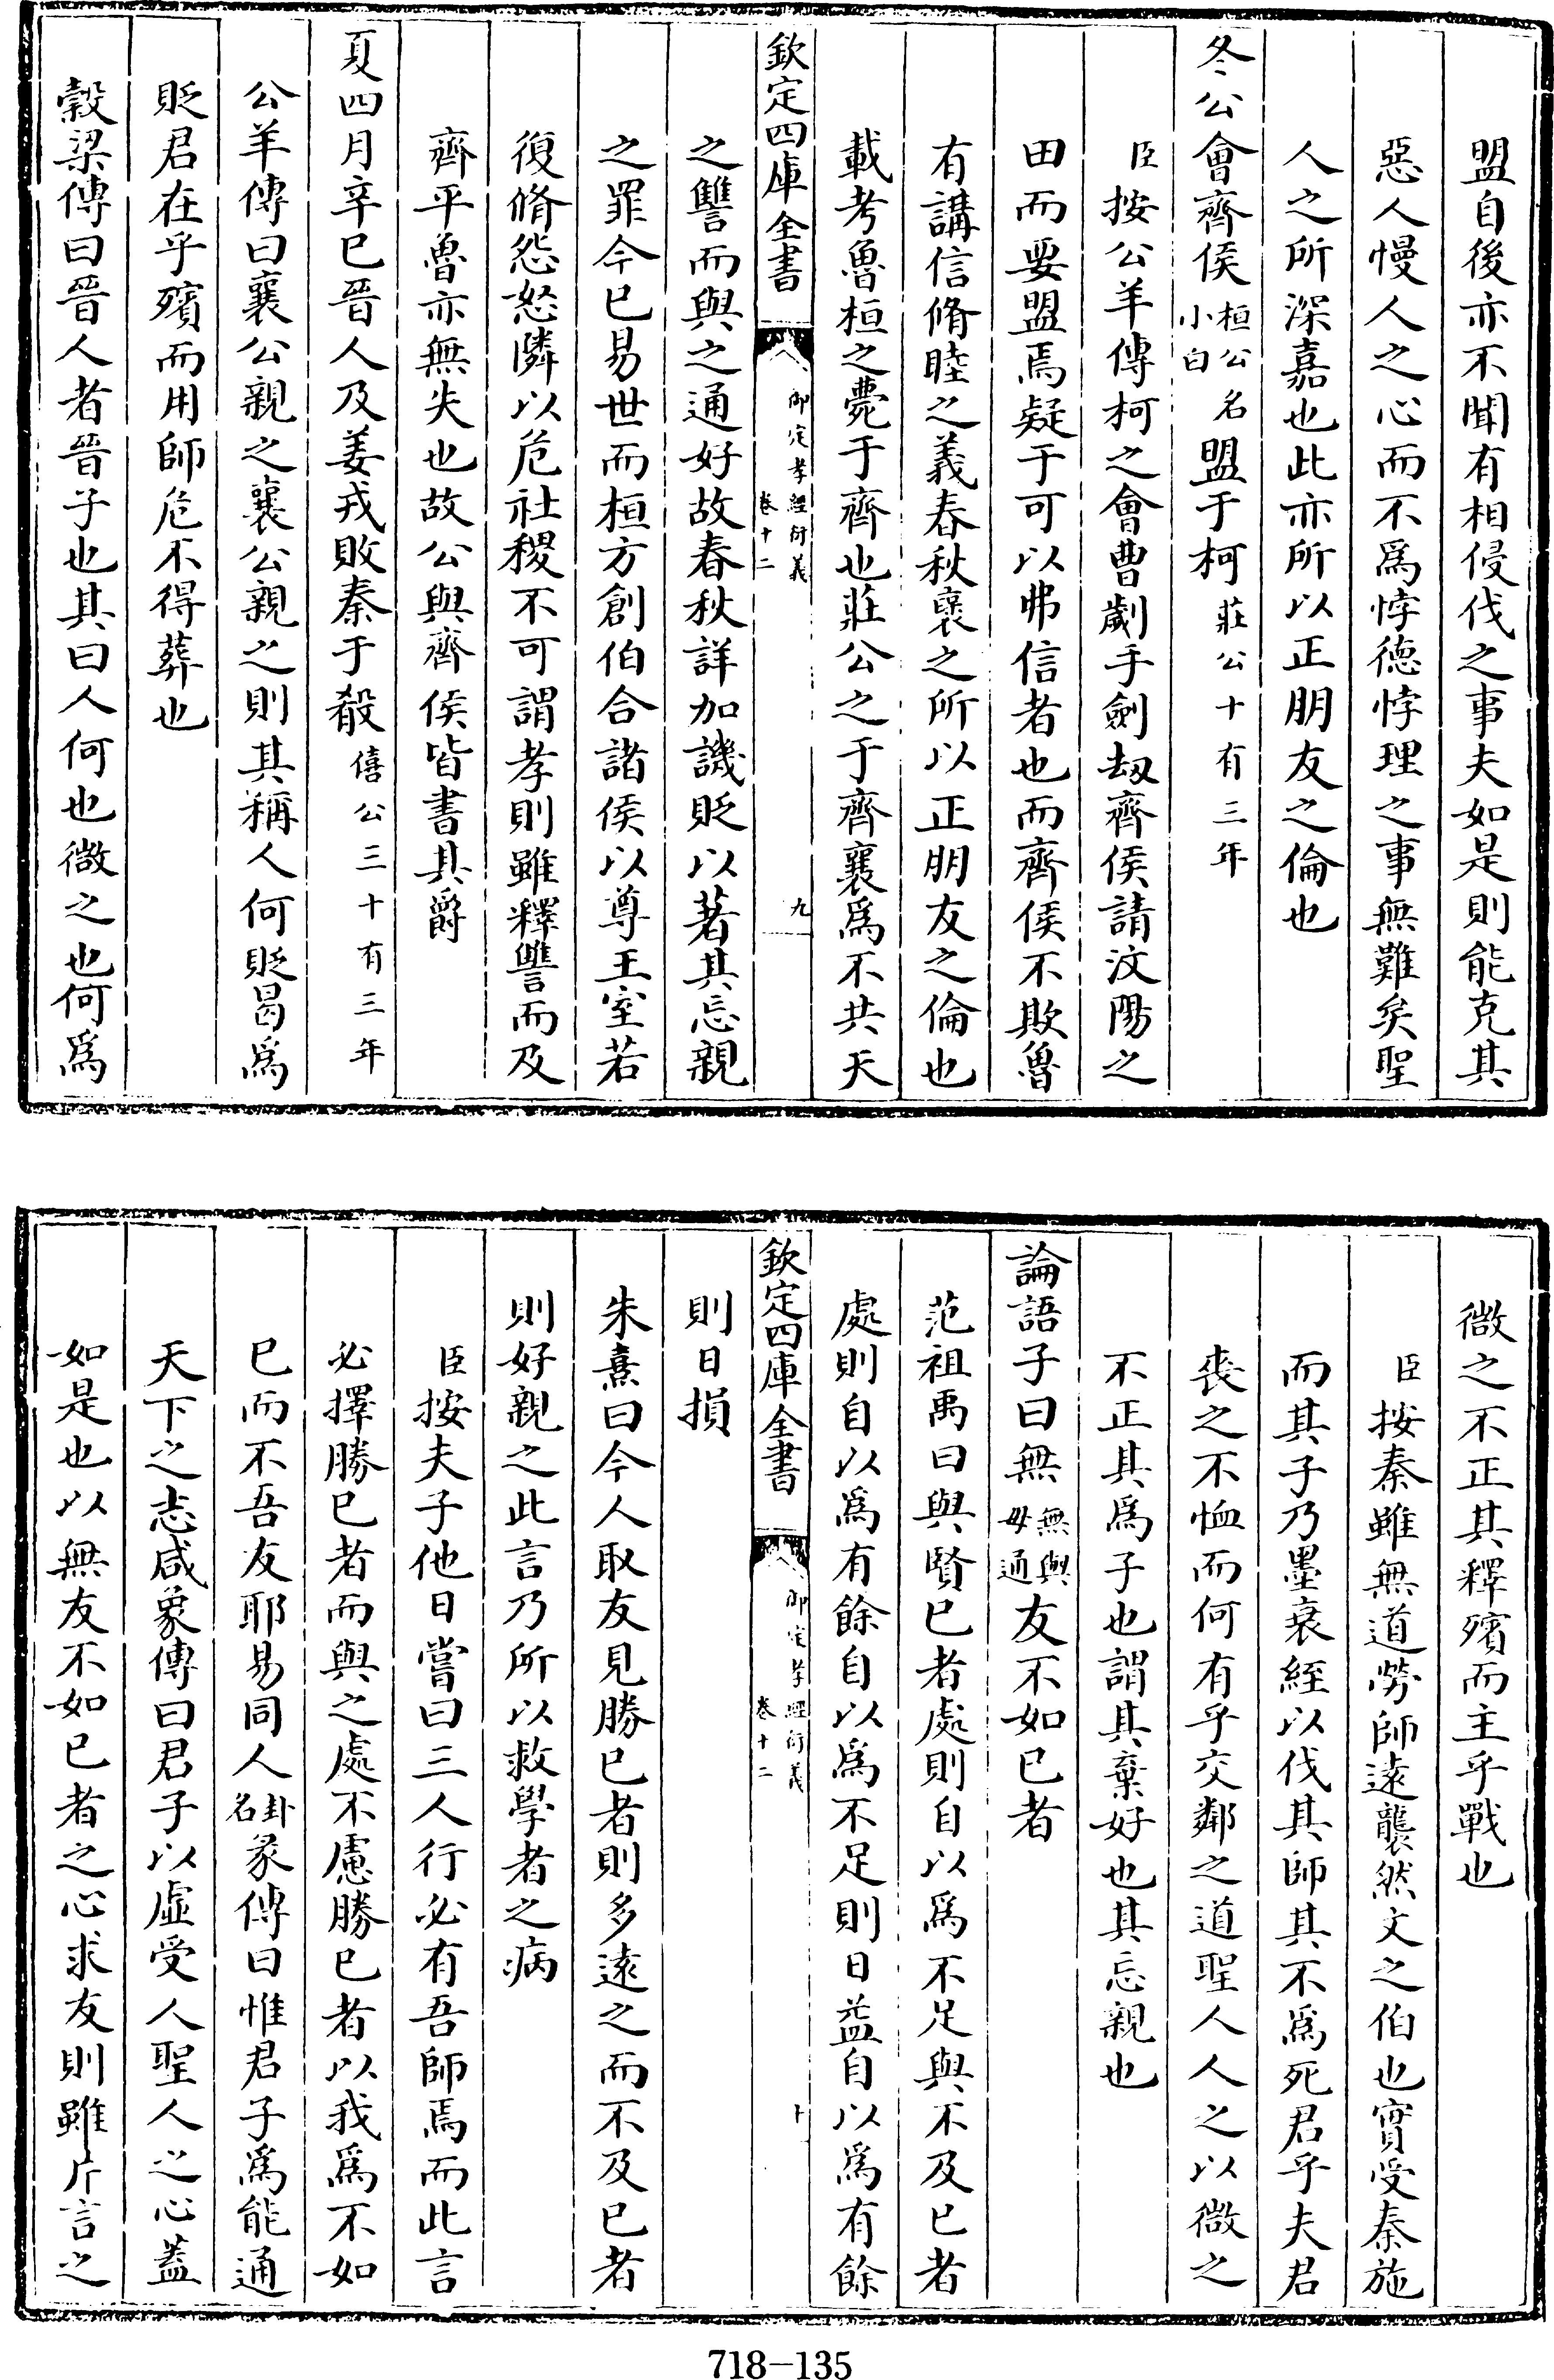 盟自後亦不聞有相侵伐之事夫如是則能克其
惡人慢人之心而不為悖德悖理之事無難矣聖
人之所深嘉也此亦所以正朋友之倫也
冬公會齊侯桓公名小白盟于柯莊公十有三年
臣按公羊傳柯之會曹劌手劍刼齊侯請汶陽之
田而要盟焉疑于可以弗信者也而齊侯不欺魯
有講信脩睦之義春秋襃之所以正朋友之倫也
載考魯桓之薨于齊也莊公之于齊襄為不共天
欽定四庫全書
御定孝經衍義
卷十二
九
之讐而與之通好故春秋詳加譏貶以著其忘親
之罪今已易世而桓方創伯合諸侯以尊王室若
復脩怨怒隣以危社稷不可謂孝則雖釋讐而及
齊平魯亦無失也故公與齊侯皆書其爵
夏四月辛巳晉人及姜戎敗秦于殽僖公三十有三年
公羊傳曰襄公親之襄公親之則其稱人何貶曷為
貶君在乎殯而用師危不得葬也
穀梁傳曰晉人者晉子也其曰人何也微之也何為
微之不正其釋殯而主乎戰也
臣按秦雖無道勞師遠襲然文之伯也實受秦施
而其子乃墨衰絰以伐其師其不為死君乎夫君
喪之不恤而何有乎交鄰之道聖人人之以微之
不正其為子也謂其棄好也其忘親也
論語子曰無無與毋通友不如已者
范祖禹曰與賢已者處則自以為不足與不及已者
處則自以為有餘自以為不足則日益自以為有餘
欽定四庫全書
御定孝經衍義
卷十二
十
則日損
朱熹曰今人取友見勝已者則多遠之而不及已者
則好親之此言乃所以救學者之病
臣按夫子他日嘗曰三人行必有吾師焉而此言
必擇勝已者而與之處不慮勝已者以我為不如
已而不吾友耶易同人卦名彖傳曰惟君子為能通
天下之志咸象傳曰君子以虛受人聖人之心蓋
如是也以無友不如已者之心求友則雖片言之
718-135